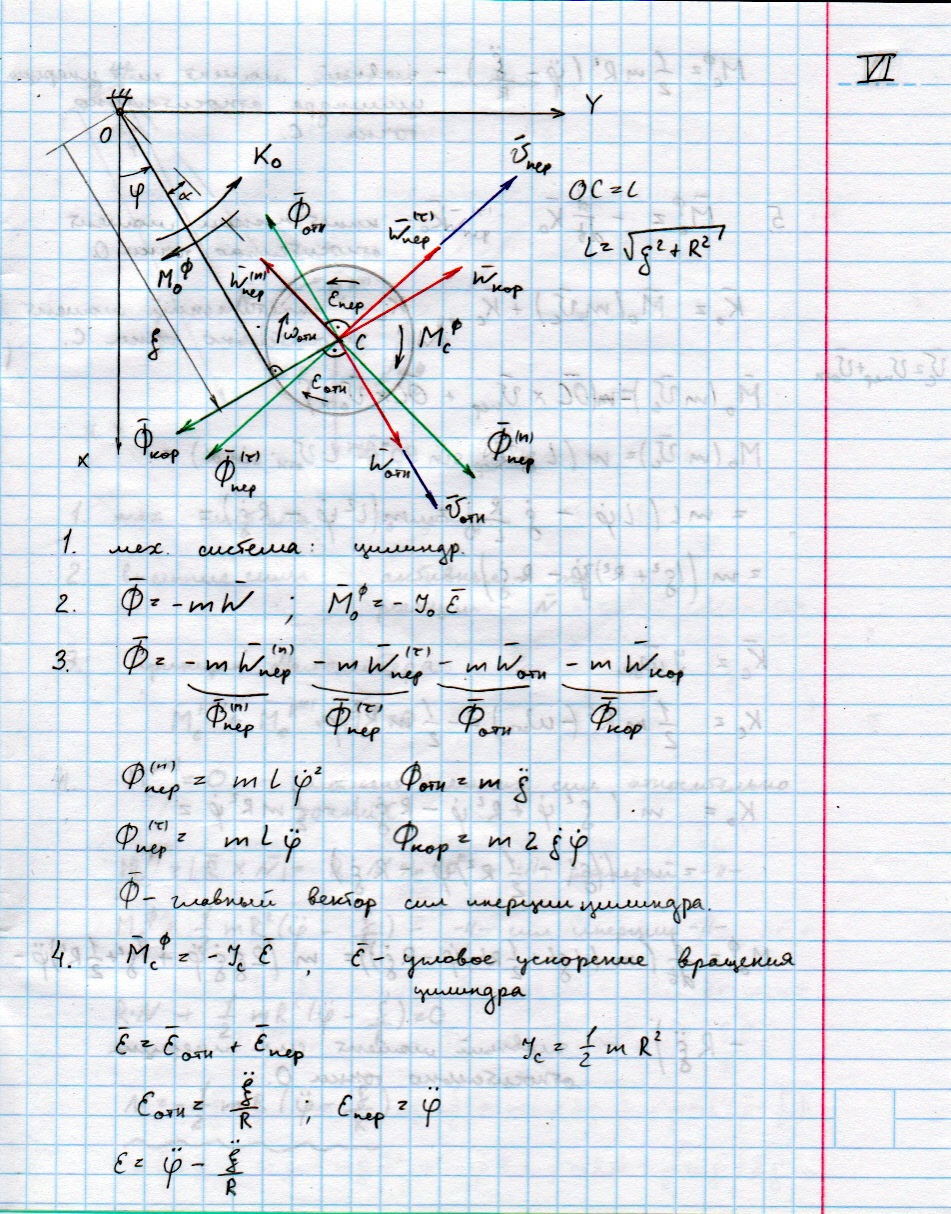 VI
O
Y
φ
α
K₀
M₀^Ф
Φ̄отн
v̄пер
OC = L
L = √(ξ² + R²)
W̄пер^(τ)
W̄кор
W̄пер^(n)
εпер
ωотн
C
M_C^Ф
ξ
εотн
Φ̄кор
Φ̄пер^(τ)
x
W̄отн
Φ̄пер^(n)
v̄отн
1. мех. система: цилиндр.
2. Φ̄ = -mW̄ ; M̄₀^Ф = -J₀ ε̄
3. Φ̄ = -mW̄пер^(n) - mW̄пер^(τ) - mW̄отн - mW̄кор
Φ̄пер^(n) Φ̄пер^(τ) Φ̄отн Φ̄кор
Φпер^(n) = mLφ̇² Φотн = mξ̈
Φпер^(τ) = mLφ̈ Φкор = m2ξ̇φ̇
Φ̄ - главный вектор сил инерции цилиндра.
4. M̄_C^Ф = -J_C ε̄ , ε̄ - угловое ускорение вращения
цилиндра
ε̄ = ε̄отн + ε̄пер J_C = ½ mR²
εотн = ξ̈/R ; εпер = φ̈
ε = φ̈ - ξ̈/R